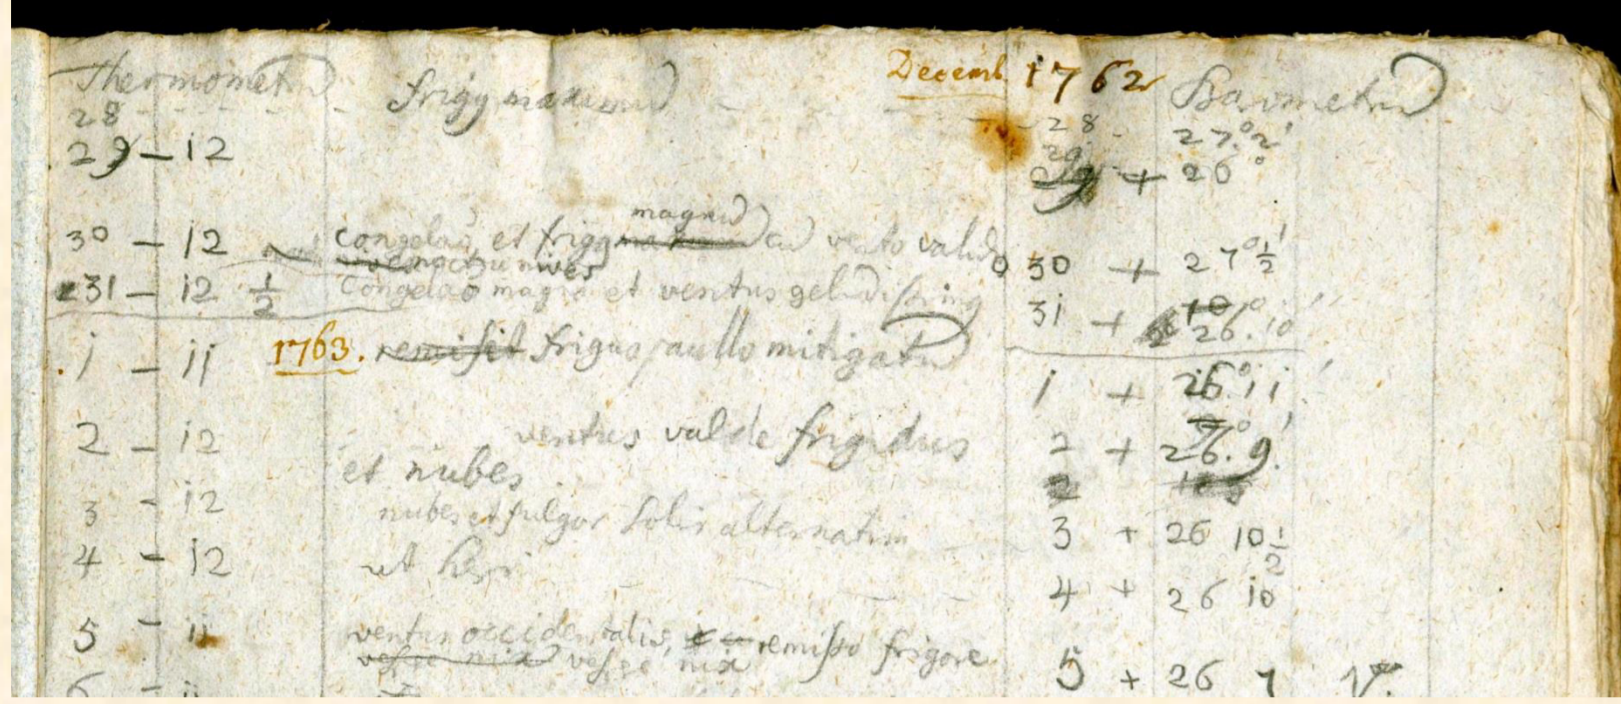 Thermometrū frigg maximū Decemb. 1762 Barometrū
28 28 27.° 2'
29 – 12 29 + 26°
magnū
30 – 12 congelaō, et frigg cū vento valido 30 + 27° 1/2'
noctu nives
31 – 12 1/2 Congelaō magna et ventus gelidissimg 31 + 26. 10
1 – 11 1763. remisit frigus paullo mitigatū 1 + 26° 11'
2 – 12 ventus valde frigidus 2 + 26.° 9.'
et nubes
3 – 12 nubes et fulgor Solis alternatim 3 + 26 10 1/2
4 – 12 ut heri 4 + 26 10
5 – 11 ventus occidentalis, remisso frigore
vespe nix vespe nix 5 + 26 7
6 – 11